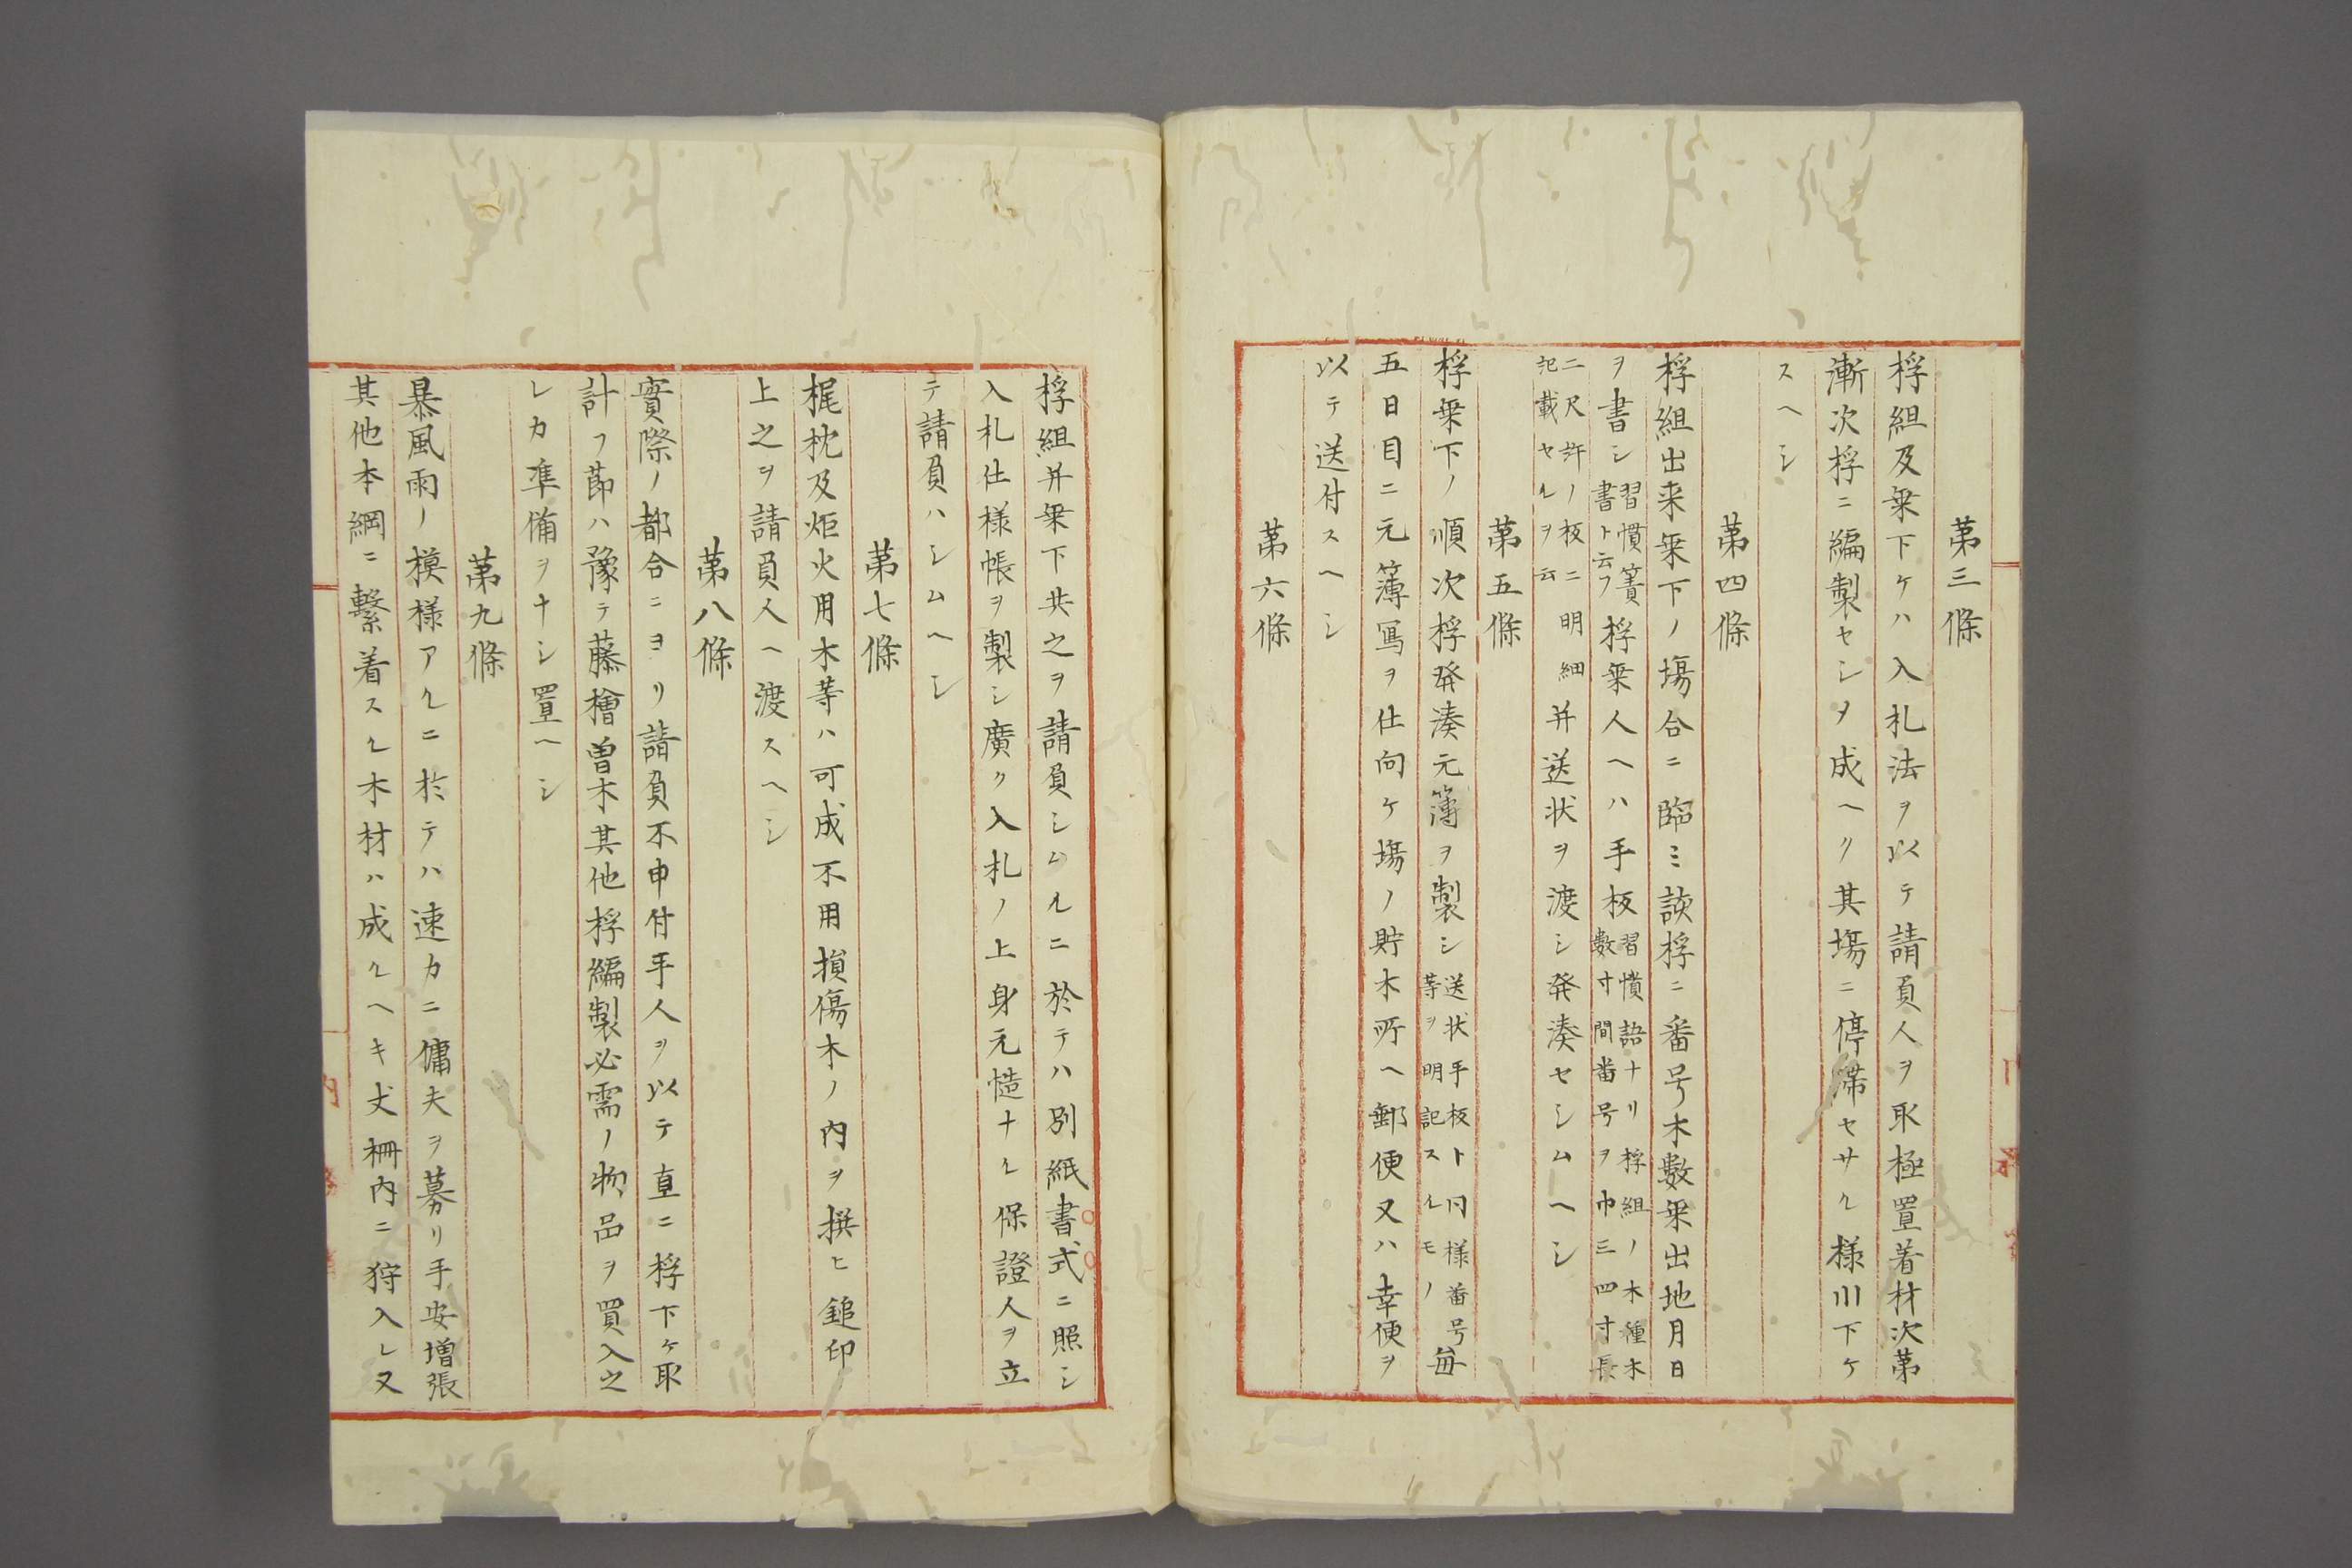 第三條
桴組及乗下ケハ入札法ヲ以テ請負人ヲ取極置着材次第
漸次桴ニ編製セシヲ成ヘク其塲ニ停滞セサル様川下ケ
スヘシ
第四條
桴組出来乗下ノ塲合ニ臨ミ該桴ニ番号木數乗出地月日
ヲ書シ習慣簀書ト云フ桴乗人ヘハ手板習慣語ナリ桴組ノ木種木數寸間番号ヲ巾三四寸長
二尺許ノ板ニ明細記載セルヲ云并送状ヲ渡シ発湊セシムヘシ
第五條
桴乗下ノ順次桴発湊元簿ヲ製シ送状手板ト同様番号等ヲ明記スルモノ毎
五日目ニ元簿寫ヲ仕向ケ塲ノ貯木所ヘ郵便又ハ幸便ヲ
以テ送付スヘシ
第六條
桴組并乗下共之ヲ請負シムルニ於テハ別紙書式ニ照シ
入札仕様帳ヲ製シ廣ク入札ノ上身元慥ナル保證人ヲ立
テ請負ハシムヘシ
第七條
梶枕及炬火用木等ハ可成不用損傷木ノ内ヲ撰ヒ鎚印
上之ヲ請負人ヘ渡スヘシ
第八條
實際ノ都合ニヨリ請負不申付手人ヲ以テ直ニ桴下ケ取
計フ節ハ豫テ藤檜曽木其他桴編製必需ノ物品ヲ買入之
レカ準備ヲナシ置ヘシ
第九條
暴風雨ノ模様アルニ於テハ速カニ傭夫ヲ募リ手安増張
其他本綱ニ繋着スル木材ハ成ルヘキ丈柵内ニ狩入レ又